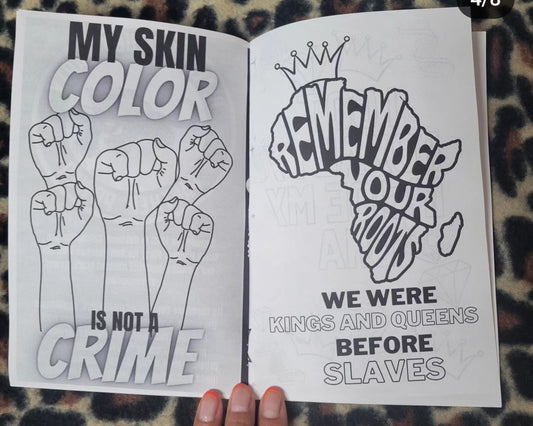 4/6
MY SKIN
COLOR
IS NOT A
CRIME
REMEMBER
YOUR
ROOTS
WE WERE
KINGS AND QUEENS
BEFORE
SLAVES